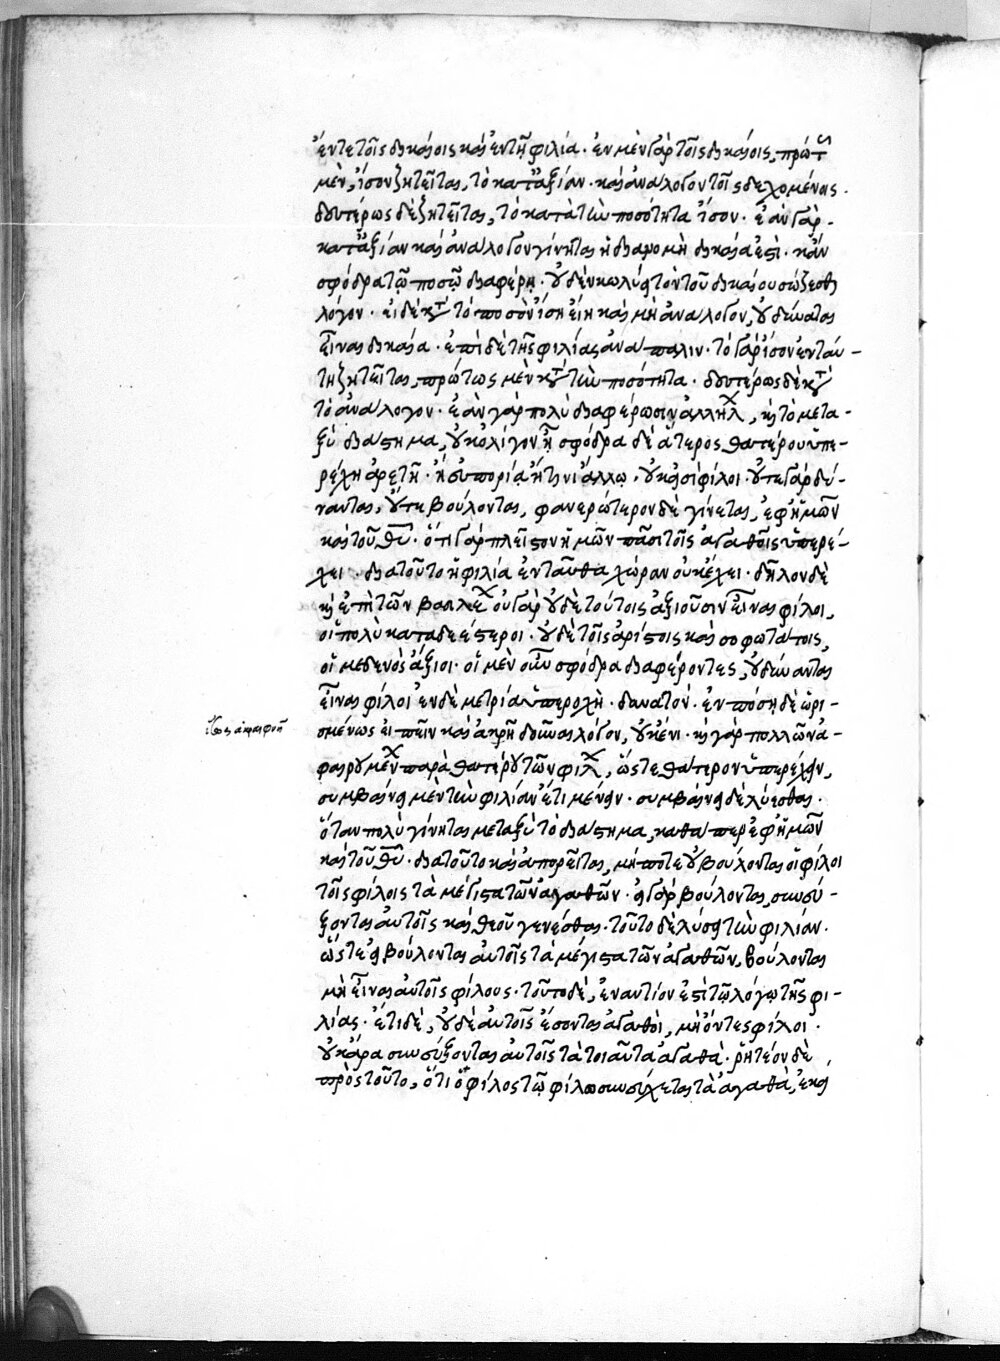 ἔν τε τοῖς δικαίοις καὶ ἐν τῇ φιλία· ἐν μὲν γὰρ τοῖς δικαίοις, πρώτως
μὲν, ἴσον ζητεῖται, τὸ κατ' ἀξίαν· καὶ ἀνάλογον τοῖς δεχομένοις.
δευτέρως δὲ ζητεῖται, τὸ κατὰ τὴν ποσότητα ἴσον· ἐὰν γὰρ
κατ' ἀξίαν καὶ ἀνάλογον γίνηται ἡ διανομὴ δικαία ἐστὶ· κἂν
σφόδρα τῷ ποσῷ διαφέρη· οὐδὲν κωλύει τὸν τοῦ δικαίου σώζεσθαι
λόγον· εἰ δὲ κατὰ τὸ ποσὸν ἴση εἴη καὶ μὴ ἀνάλογον, οὐ δύναται
εἶναι δικαία· ἐπὶ δὲ τῆς φιλίας ἀνάπαλιν· τὸ γὰρ ἴσον ἐνταύ-
τη ζητεῖται, πρώτως μὲν κατὰ τὴν ποσότητα· δευτέρως δὲ κατὰ
τὸ ἀνάλογον· ἐὰν γὰρ πολὺ διαφέρωσιν ἀλλήλων, καὶ τὸ μετα-
ξὺ διάστημα, οὐκ ὀλίγον ᾖ σφόδρα δὲ ἅτερος θατέρου ὑπε-
ρέχη ἀρετῇ· ἢ εὐπορία ἤ τινι ἄλλω, οὐκ εἰσὶ φίλοι· οὔτε γὰρ δύ-
νανται, οὔτε βούλονται, φανερώτερον δὲ γίνεται, ἐφ' ἡμῶν
καὶ τοῦ θυ· ὅτι γὰρ πλεῖστον ἡμῶν πᾶσι τοῖς ἀγαθοῖς ὑπερέ-
χει· διατοῦτο ἡ φιλία ἐνταῦθα χώραν οὐκ ἔχει· δῆλον δὲ
καὶ ἐπὶ τῶν βασιλέων οὐ γὰρ οὐδὲ τούτοις ἀξιοῦσιν εἶναι φίλοι,
οἱ πολὺ καταδεέστεροι· οὐδὲ τοῖς ἀρίστοις καὶ σοφωτάτοις,
οἱ μεδενὸς ἄξιοι· οἱ μὲν οὖν σφόδρα διαφέροντες, οὐ δύνανται
εἶναι φίλοι ἐν δὲ μετρία ὑπεροχῇ· δυνατόν· ἐν πόση δὲ ὡρι-
σμένως εἰπεῖν καὶ ἀκριβῆ δοῦναι λόγον, οὐκ ἔνι· καὶ γὰρ πολλῶν ἀ-
φαιρουμένων παρὰ θατέρου τῶν φίλων, ὥστε θάτερον ὑπερέχειν,
συμβαίνει μὲν τὴν φιλίαν ἔτι μένειν· συμβαίνει δὲ λύεσθαι·
ὅταν πολὺ γίνηται μεταξὺ τὸ διάστημα, καθάπερ ἐφ' ἡμῶν
καὶ τοῦ θυ· διατοῦτο καὶ ἀπορεῖται, μήποτε οὐ βούλονται οἱ φίλοι
τοῖς φίλοις τὰ μέγιστα τῶν ἀγαθῶν· εἰ γὰρ βούλονται, συνεύ-
ξονται αὐτοῖς καὶ θεοῦ γενέσθαι· τοῦτο δὲ λύσει τὴν φιλίαν·
ὥστε εἰ βούλονται αὐτοῖς τὰ μέγιστα τῶν ἀγαθῶν, βούλονται
μὴ εἶναι αὐτοῖς φίλους· τοῦτο δὲ, ἐναντίον ἐστὶ τῷ λόγω τῆς φι-
λίας· ἔτι δὲ, οὐδὲ αὐτοῖς ἔσονται ἀγαθοὶ, μὴ ὄντες φίλοι·
οὐκ ἄρα συνεύξονται αὐτοῖς τὰ τοιαῦτα ἀγαθὰ· ῥητέον δὲ
πρὸς τοῦτο, ὅτι ὁ φίλος τῷ φίλω συνεύχεται τὰ ἀγαθὰ, ἐκεί